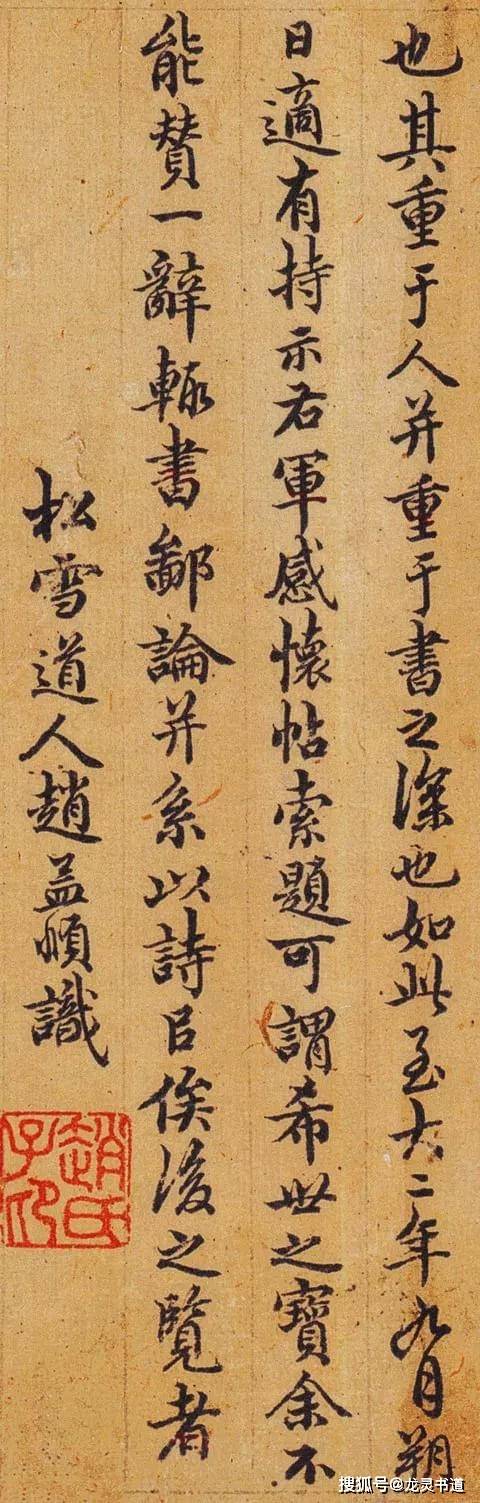 也其重于人并重于書之深也如此至大二年九月朔
日適有持示右軍感懷帖索題可謂希世之寶余不
能贊一辭輒書鄙論并系以詩㠯俟後之覽者
松雪道人趙孟頫識
趙氏子昂
搜狐号@龙灵书道